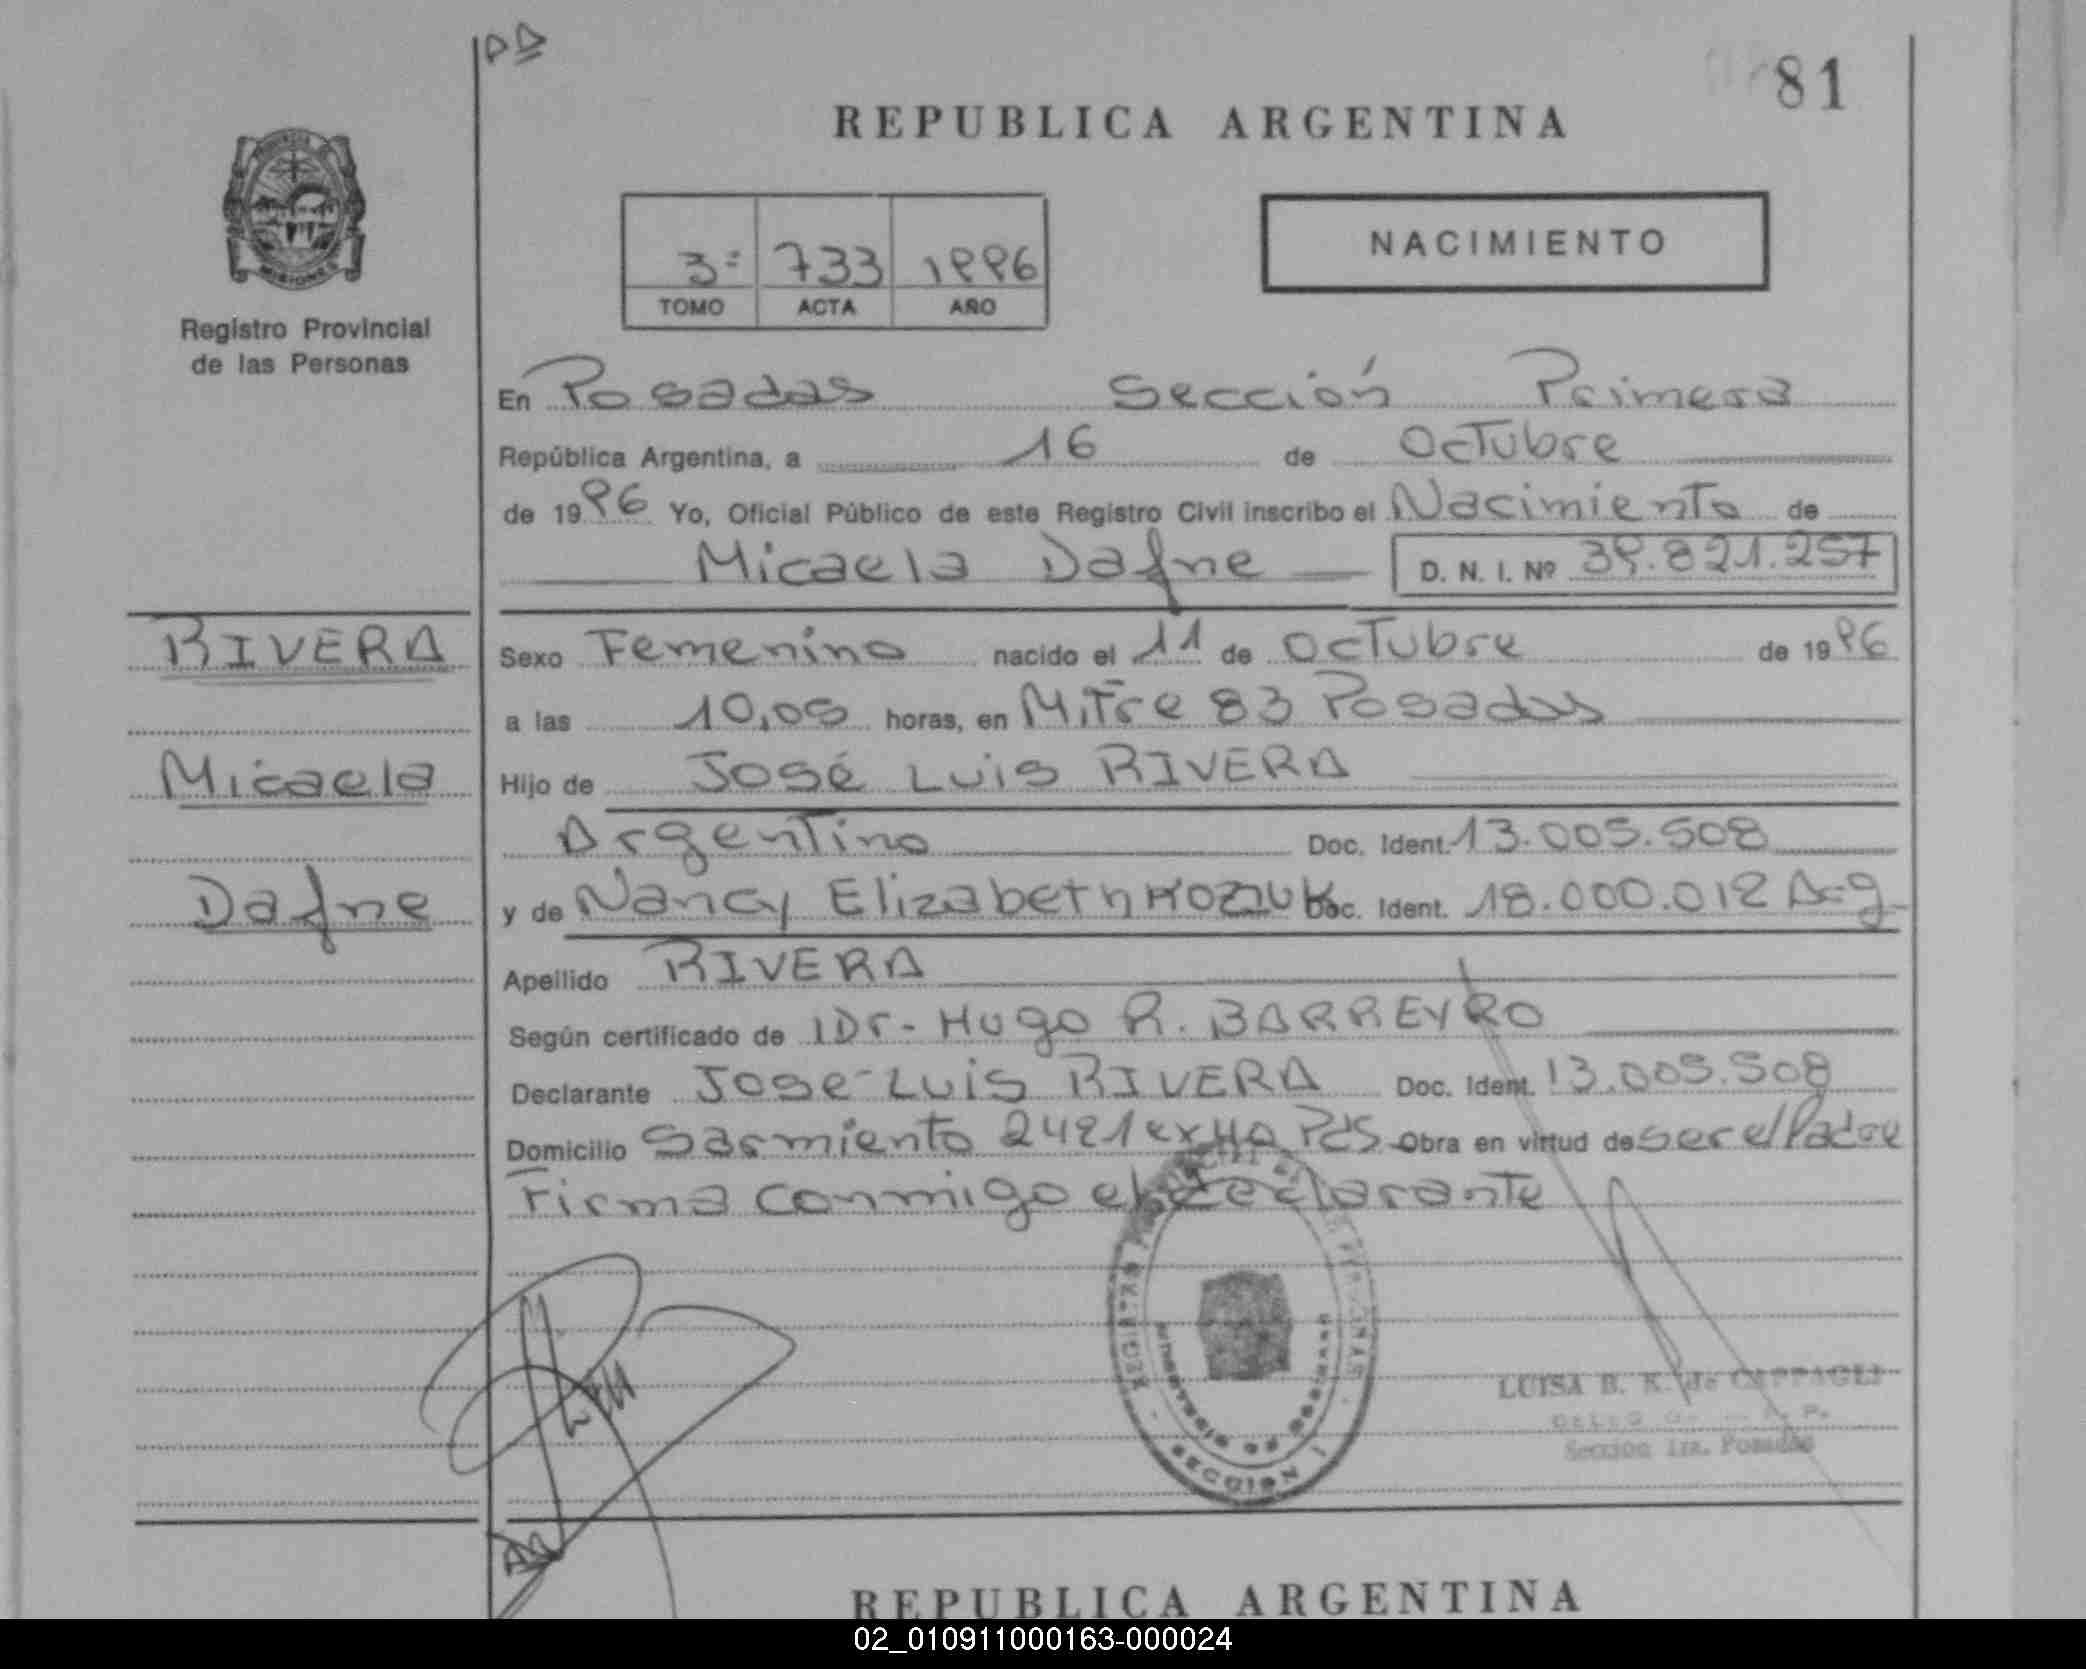 81
REPUBLICA ARGENTINA
NACIMIENTO
3º 733 1996
TOMO ACTA AÑO
MISIONES
Registro Provincial
de las Personas
En Posadas Sección Primera
República Argentina, a 16 de Octubre
de 1996 Yo, Oficial Público de este Registro Civil inscribo el Nacimiento de
Micaela Dafne D. N. I. Nº 39.821.257
RIVERA
Micaela
Dafne
Sexo Femenino nacido el 11 de Octubre de 1996
a las 10,05 horas, en Mitre 83 Posadas
Hijo de José Luis RIVERA
Argentino Doc. Ident. 13.005.508
y de Nancy Elizabeth Doc. Ident. 18.000.012 Arg.
Apellido RIVERA
Según certificado de Dr. Hugo R. BARREYRO
Declarante José Luis RIVERA Doc. Ident. 13.005.508
Domicilio Sarmiento 2421 Pds Obra en virtud de ser el Padre
Firma conmigo el declarante
SECCION 1
LUISA B. K. de CAPPAGLI
Sección 1ra. Posadas
REPUBLICA ARGENTINA
02_010911000163-000024